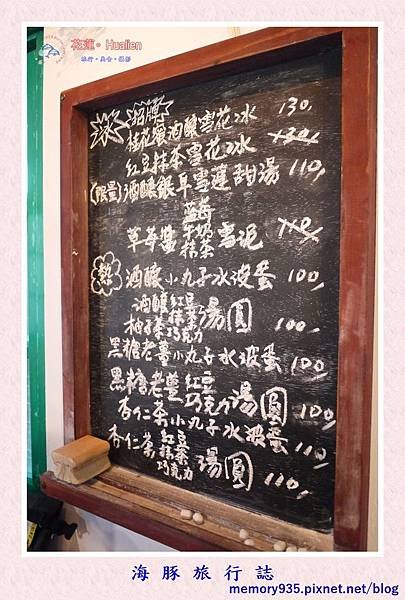 花蓮。Hualien
旅行。美食。攝影
冰 招牌
桂花蜜酒釀雪花冰 130.
紅豆抹茶雪花冰 130.
(限量)酒釀銀耳雪蓮甜湯 110.
草莓醬 藍莓 牛奶 抹茶 雪泥 110.
熱 酒釀小丸子水波蛋 100.
酒釀 柚子茶 紅豆 抹茶 巧克力 湯圓 100.
黑糖老薑小丸子水波蛋 100.
黑糖老薑 紅豆 巧克力 湯圓 100.
杏仁茶小丸子水波蛋 110.
杏仁茶 紅豆 抹茶 巧克力 湯圓 110.
海豚旅行誌
memory935.pixnet.net/blog